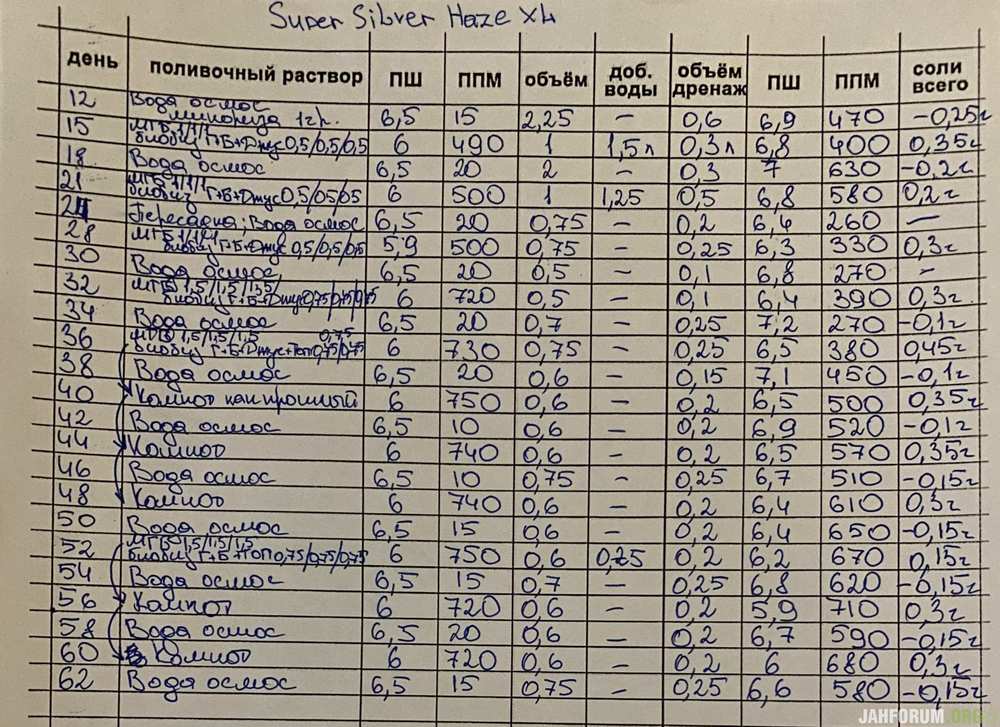 Super Silver Haze XL
день поливочный раствор ПШ ППМ объём доб. воды объём дренаж ПШ ППМ соли всего
12 Вода осмос 6,5 15 2,25 – 0,6 6,9 470 -0,25г
15 МГБ 1/1/1 биобиз Г+Б+Джус 0,5/0,5/0,5 6 490 1 1,5л 0,3л 6,8 400 0,35г
18 Вода осмос 6,5 20 2 – 0,3 7 630 -0,2г
21 МГБ 1/1/1 биобиз Г+Б+Джус 0,5/05/05 6 500 1 1,25 0,5 6,8 580 0,2г
24 Пересадка; Вода осмос 6,5 20 0,75 – 0,2 6,4 260 –
28 МГБ 1/1/1 биобиз Г+Б+Джус 0,5/0,5/0,5 5,9 500 0,75 – 0,25 6,3 330 0,3г
30 Вода осмос 6,5 20 0,5 – 0,1 6,8 270 –
32 МГБ 1,5/1,5/1,5/ биобиз Г+Б+Джус 0,75/0,75/0,75 6 720 0,5 – 0,1 6,4 390 0,3г
34 Вода осмос 6,5 20 0,7 – 0,25 7,2 270 -0,1г
36 МГБ 1,5/1,5/1,5 0,75 биобиз Г+Б+Джус+Топ 0,75/0,75 6 730 0,75 – 0,25 6,5 380 0,45г
38 Вода осмос 6,5 20 0,6 – 0,15 7,1 450 -0,1г
40 Компот как прошлый 6 750 0,6 – 0,2 6,5 500 0,35г
42 Вода осмос 6,5 10 0,6 – 0,2 6,9 520 -0,1г
44 Компот 6 740 0,6 – 0,2 6,5 570 0,35г
46 Вода осмос 6,5 10 0,75 – 0,25 6,7 510 -0,15г
48 Компот 6 740 0,6 – 0,2 6,4 610 0,3г
50 Вода осмос 6,5 15 0,6 – 0,2 6,4 650 -0,15г
52 МГБ 1,5/1,5/1,5 биобиз Г+Б+Топ 0,75/0,75/0,75 6 750 0,6 0,25 0,2 6,2 670 0,15г
54 Вода осмос 6,5 15 0,7 – 0,25 6,8 620 -0,15г
56 Компот 6 720 0,6 – 0,2 5,9 710 0,3г
58 Вода осмос 6,5 20 0,6 – 0,2 6,7 590 -0,15г
60 Компот 6 720 0,6 – 0,2 6 680 0,3г
62 Вода осмос 6,5 15 0,75 – 0,25 6,6 580 -0,15г
JAHFORUM.ORG